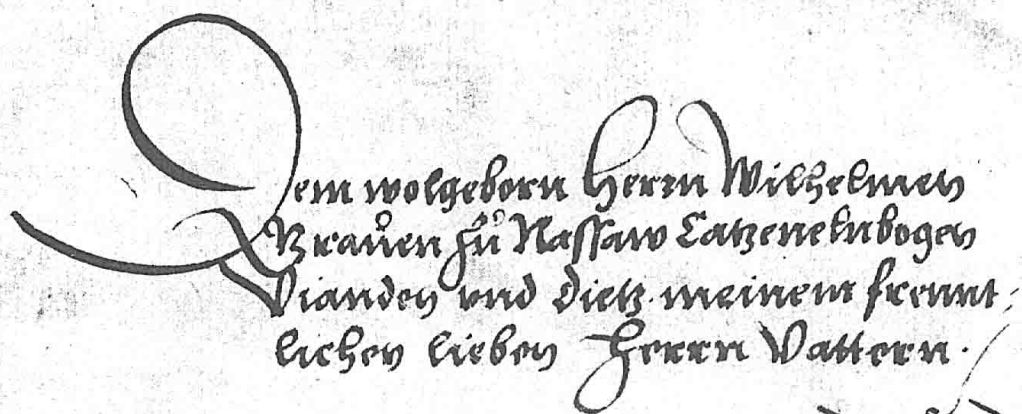 Dem wolgeborn Herrn Wilhelmen
Grauen zů Nassaw Catzenelnbogen
Vianden vnd Dietz meinem freunt,
lichen lieben Herrn Vattern.